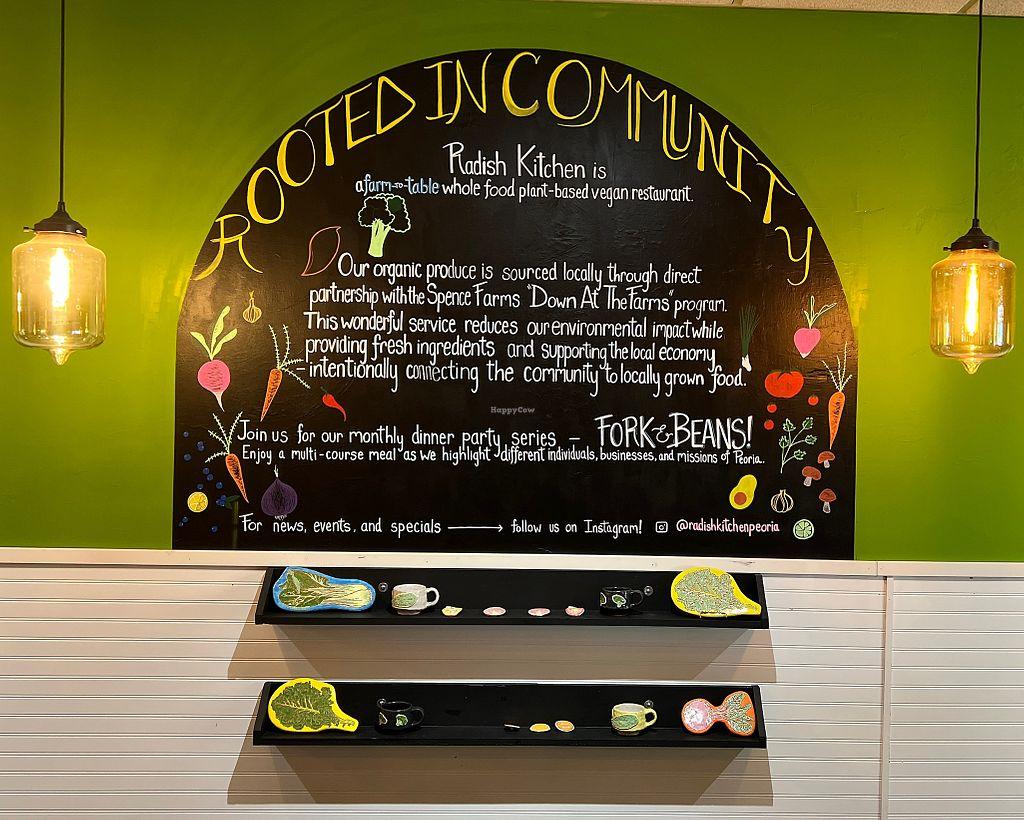 ROOTED IN COMMUNITY
Radish Kitchen is
a farm-to-table whole food plant-based vegan restaurant.
Our organic produce is sourced locally through direct
partnership with the Spence Farms "Down At The Farms" program.
This wonderful service reduces our environmental impact while
providing fresh ingredients and supporting the local economy
- intentionally connecting the community to locally grown food.
HappyCow
Join us for our monthly dinner party series - FORK & BEANS!
Enjoy a multi-course meal as we highlight different individuals, businesses, and missions of Peoria.
For news, events, and specials → follow us on Instagram! @radishkitchenpeoria